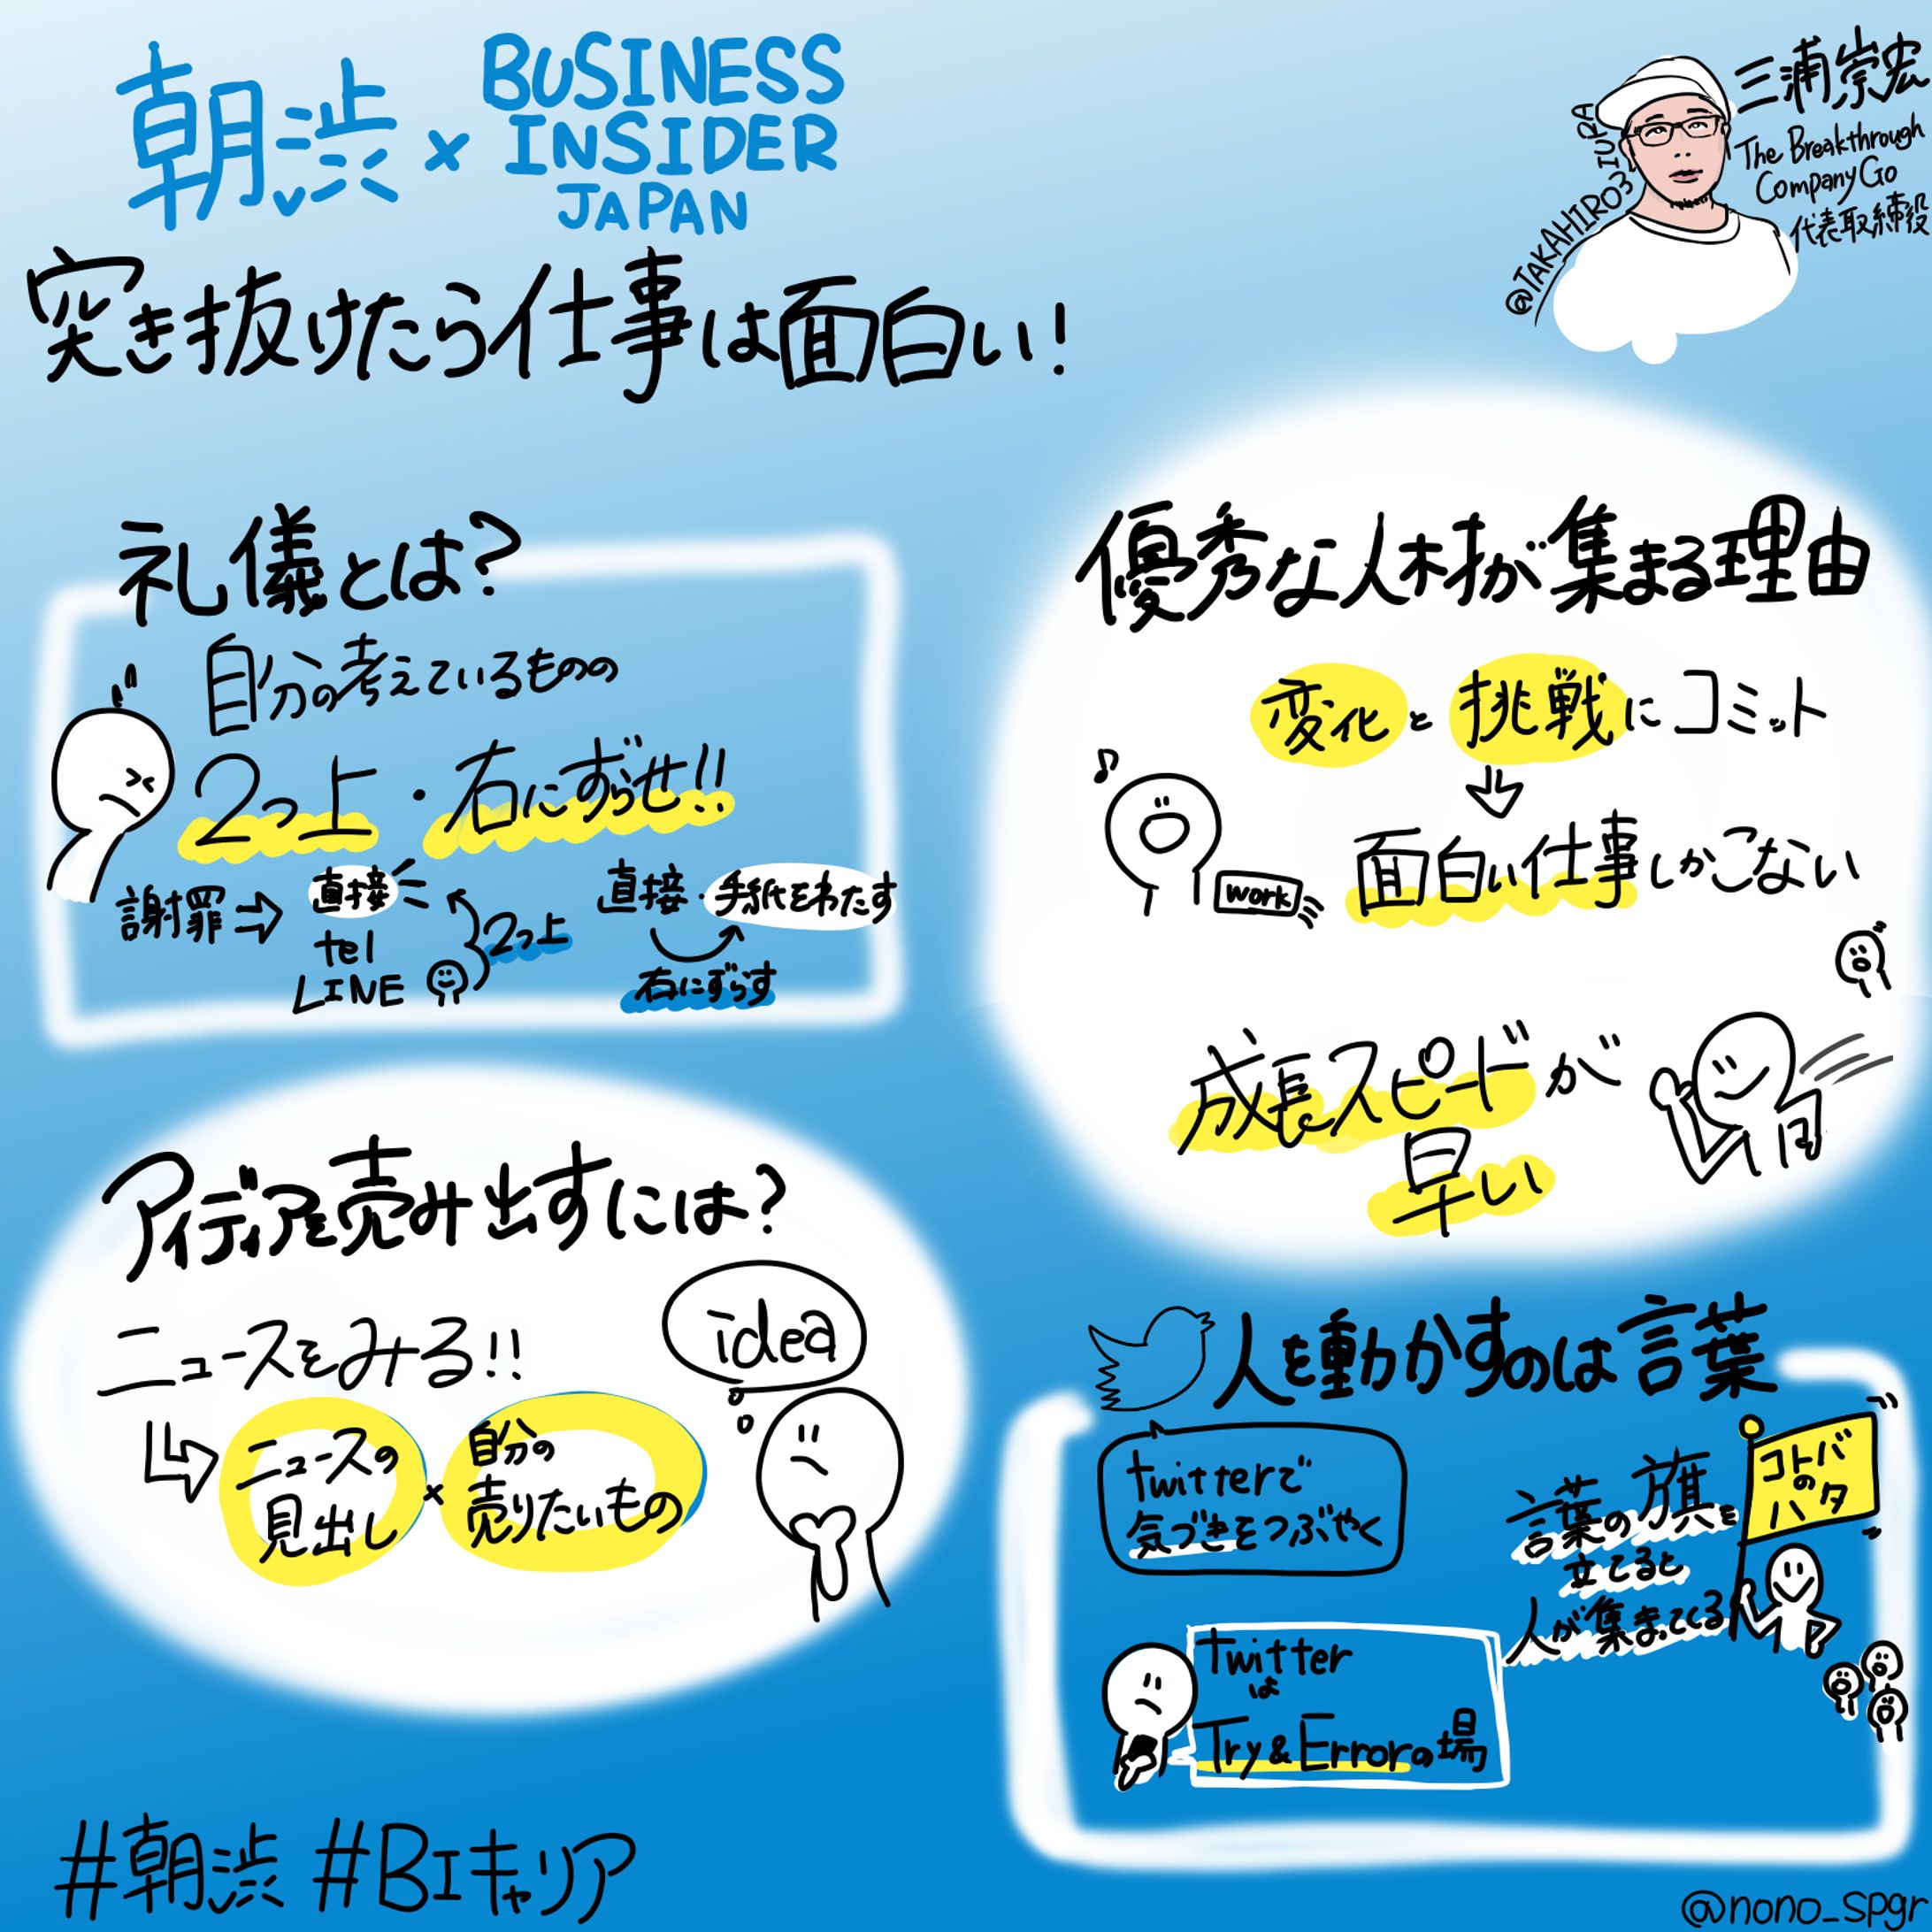 朝渋 × BUSINESS
INSIDER
JAPAN
突き抜けたら仕事は面白い!
@TAKAHIRO3IURA
三浦崇宏
The Breakthrough
Company Go
代表取締役
礼儀とは?
自分の考えているものの
2つ上・右にずらせ!!
謝罪⇨
直接
tel
LINE
2つ上
直接・手紙をわたす
右にずらす
優秀な人材が集まる理由
変化と挑戦にコミット
↓
面白い仕事しかこない
work
成長スピードが
早い
アイディアを売み出すには?
ニュースをみる!!
idea
ニュースの
見出し
×
自分の
売りたいもの
人を動かすのは言葉
twitterで
気づきをつぶやく
言葉の旗を
立てると
人が集まってくる
コトバ
の
ハタ
twitter
は
Try&Errorの場
#朝渋 #BIキャリア
@nono_spgr